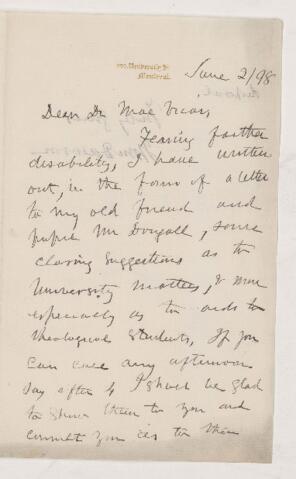 University St
Montreal.
June 2/98
Dear Dr Mac Vicar,
Fearing further
disability, I have written
out, in the form of a letter
to my old friend and
pupil Mr Dougall, some
closing suggestions as to
University matters, & more
especially as to aids to
theological students. If you
can call any afternoon
say after 4 I shall be glad
to show them to you and
consult you as to them